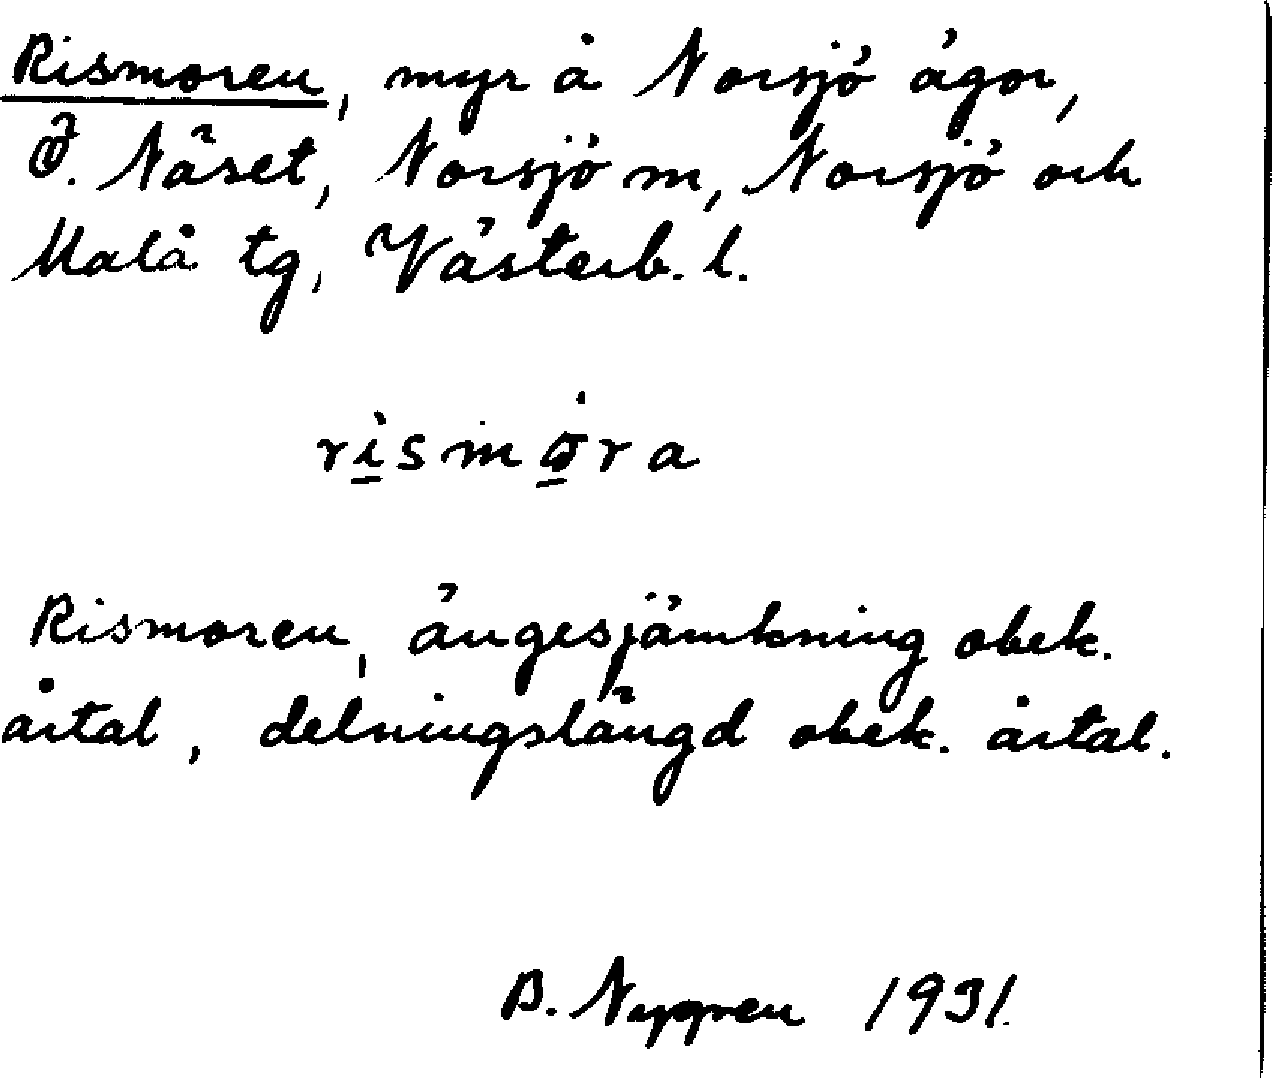 Rismoren, myr å Norsjö ägor,
Ö. Näset, Norsjö m, Norsjö och
Malå tg, Västerb. l.
rìsmȯra
Rismoren, ängesjämkning obek.
årtal, delningslängd obek. årtal.
B. Nygren 1931.